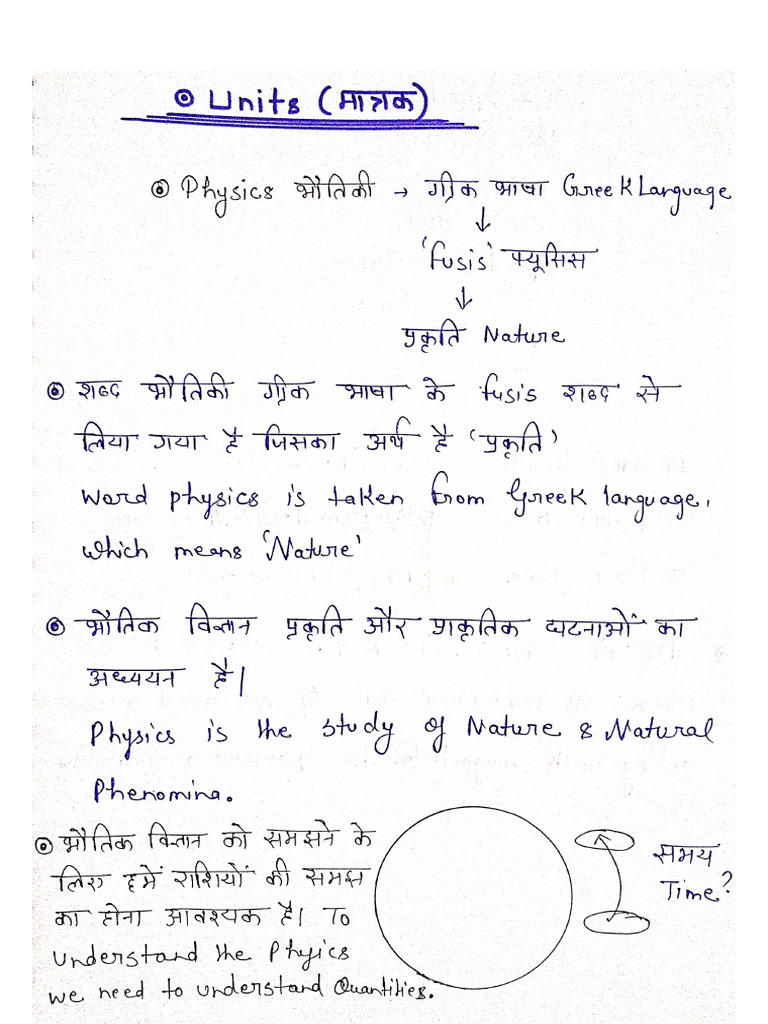 Units (मात्रक)
Physics भौतिकी → ग्रीक भाषा Greek Language
↓
'fusis' फ्यूसिस
↓
प्रकृति Nature
शब्द भौतिकी ग्रीक भाषा के fusis शब्द से
लिया गया है जिसका अर्थ है 'प्रकृति'
word physics is taken from Greek language,
which means 'Nature'
भौतिक विज्ञान प्रकृति और प्राकृतिक घटनाओं का
अध्ययन है।
Physics is the study of Nature & Natural
Phenomina.
भौतिक विज्ञान को समझने के
लिए हमें राशियों की समझ
का होना आवश्यक है। To
understand the Phyics
we need to understand Quantities.
समय
Time?